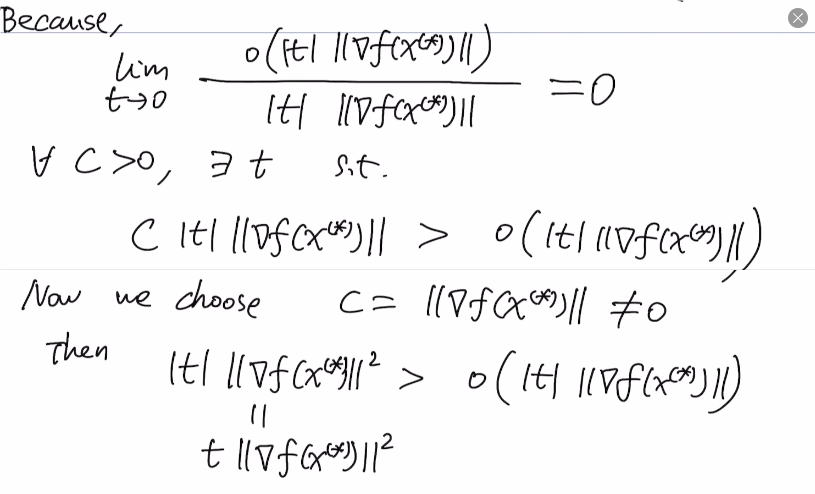 Because,
lim t→0 o(|t| ||∇f(x^(*))||) / |t| ||∇f(x^(*))|| = 0
∀ C>0, ∃ t s.t.
C |t| ||∇f(x^(*))|| > o(|t| ||∇f(x^(*))||),
Now we choose C = ||∇f(x^(*))|| ≠ 0
Then |t| ||∇f(x^(*))||² > o(|t| ||∇f(x^(*))||)
||
t ||∇f(x^(*))||²